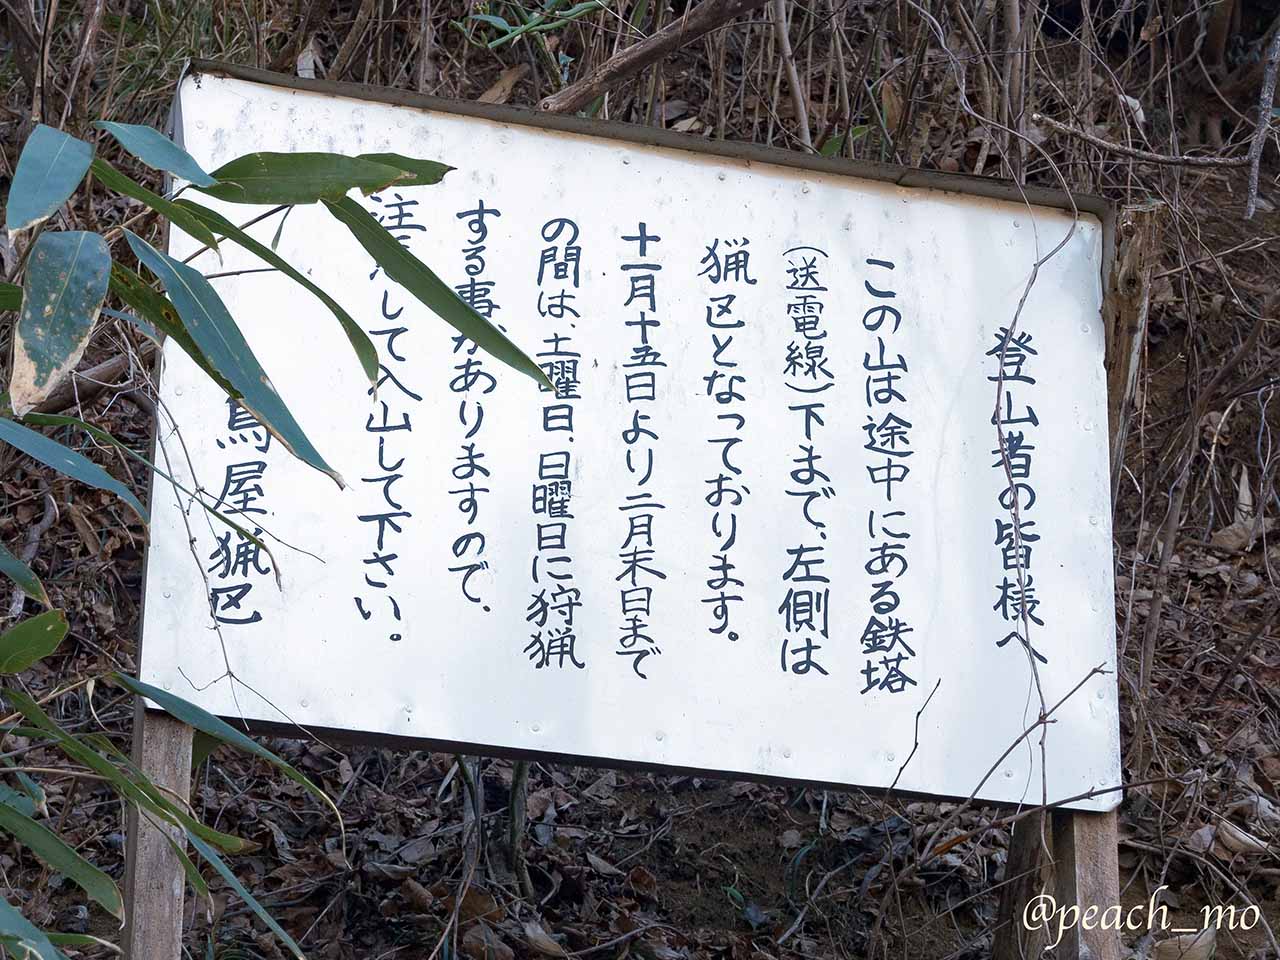 登山者の皆様へ
この山は途中にある鉄塔
(送電線)下まで、左側は
猟区となっております。
十一月十五日より二月末日まで
の間は、土曜日、日曜日に狩猟
する事がありますので、
注して入山して下さい。
鳥屋猟区
@peach_mo